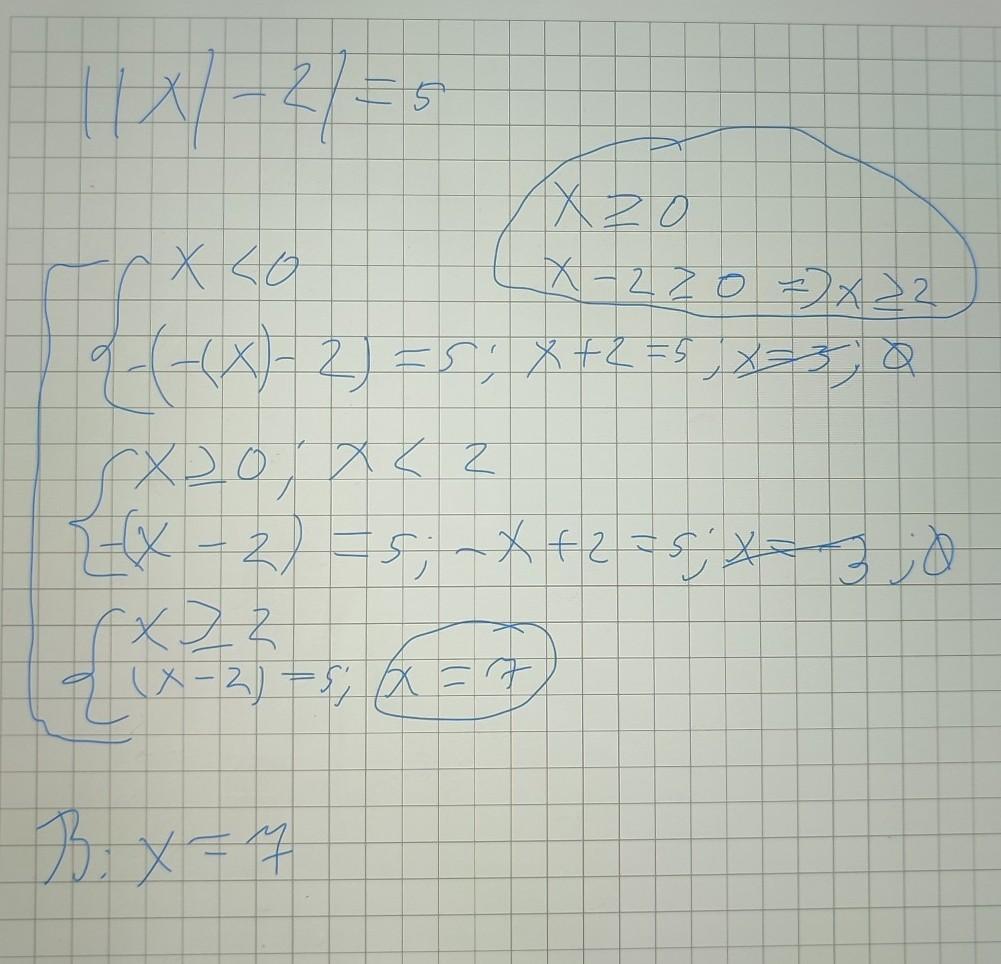 ||x|-2|=5
x≥0
x-2≥0 =>x≥2
x<0
-(-(x)-2)=5; x+2=5; x=3; ∅
x≥0; x<2
-(x-2)=5; -x+2=5; x=-3; ∅
x≥2
(x-2)=5; x=7
В: x=7